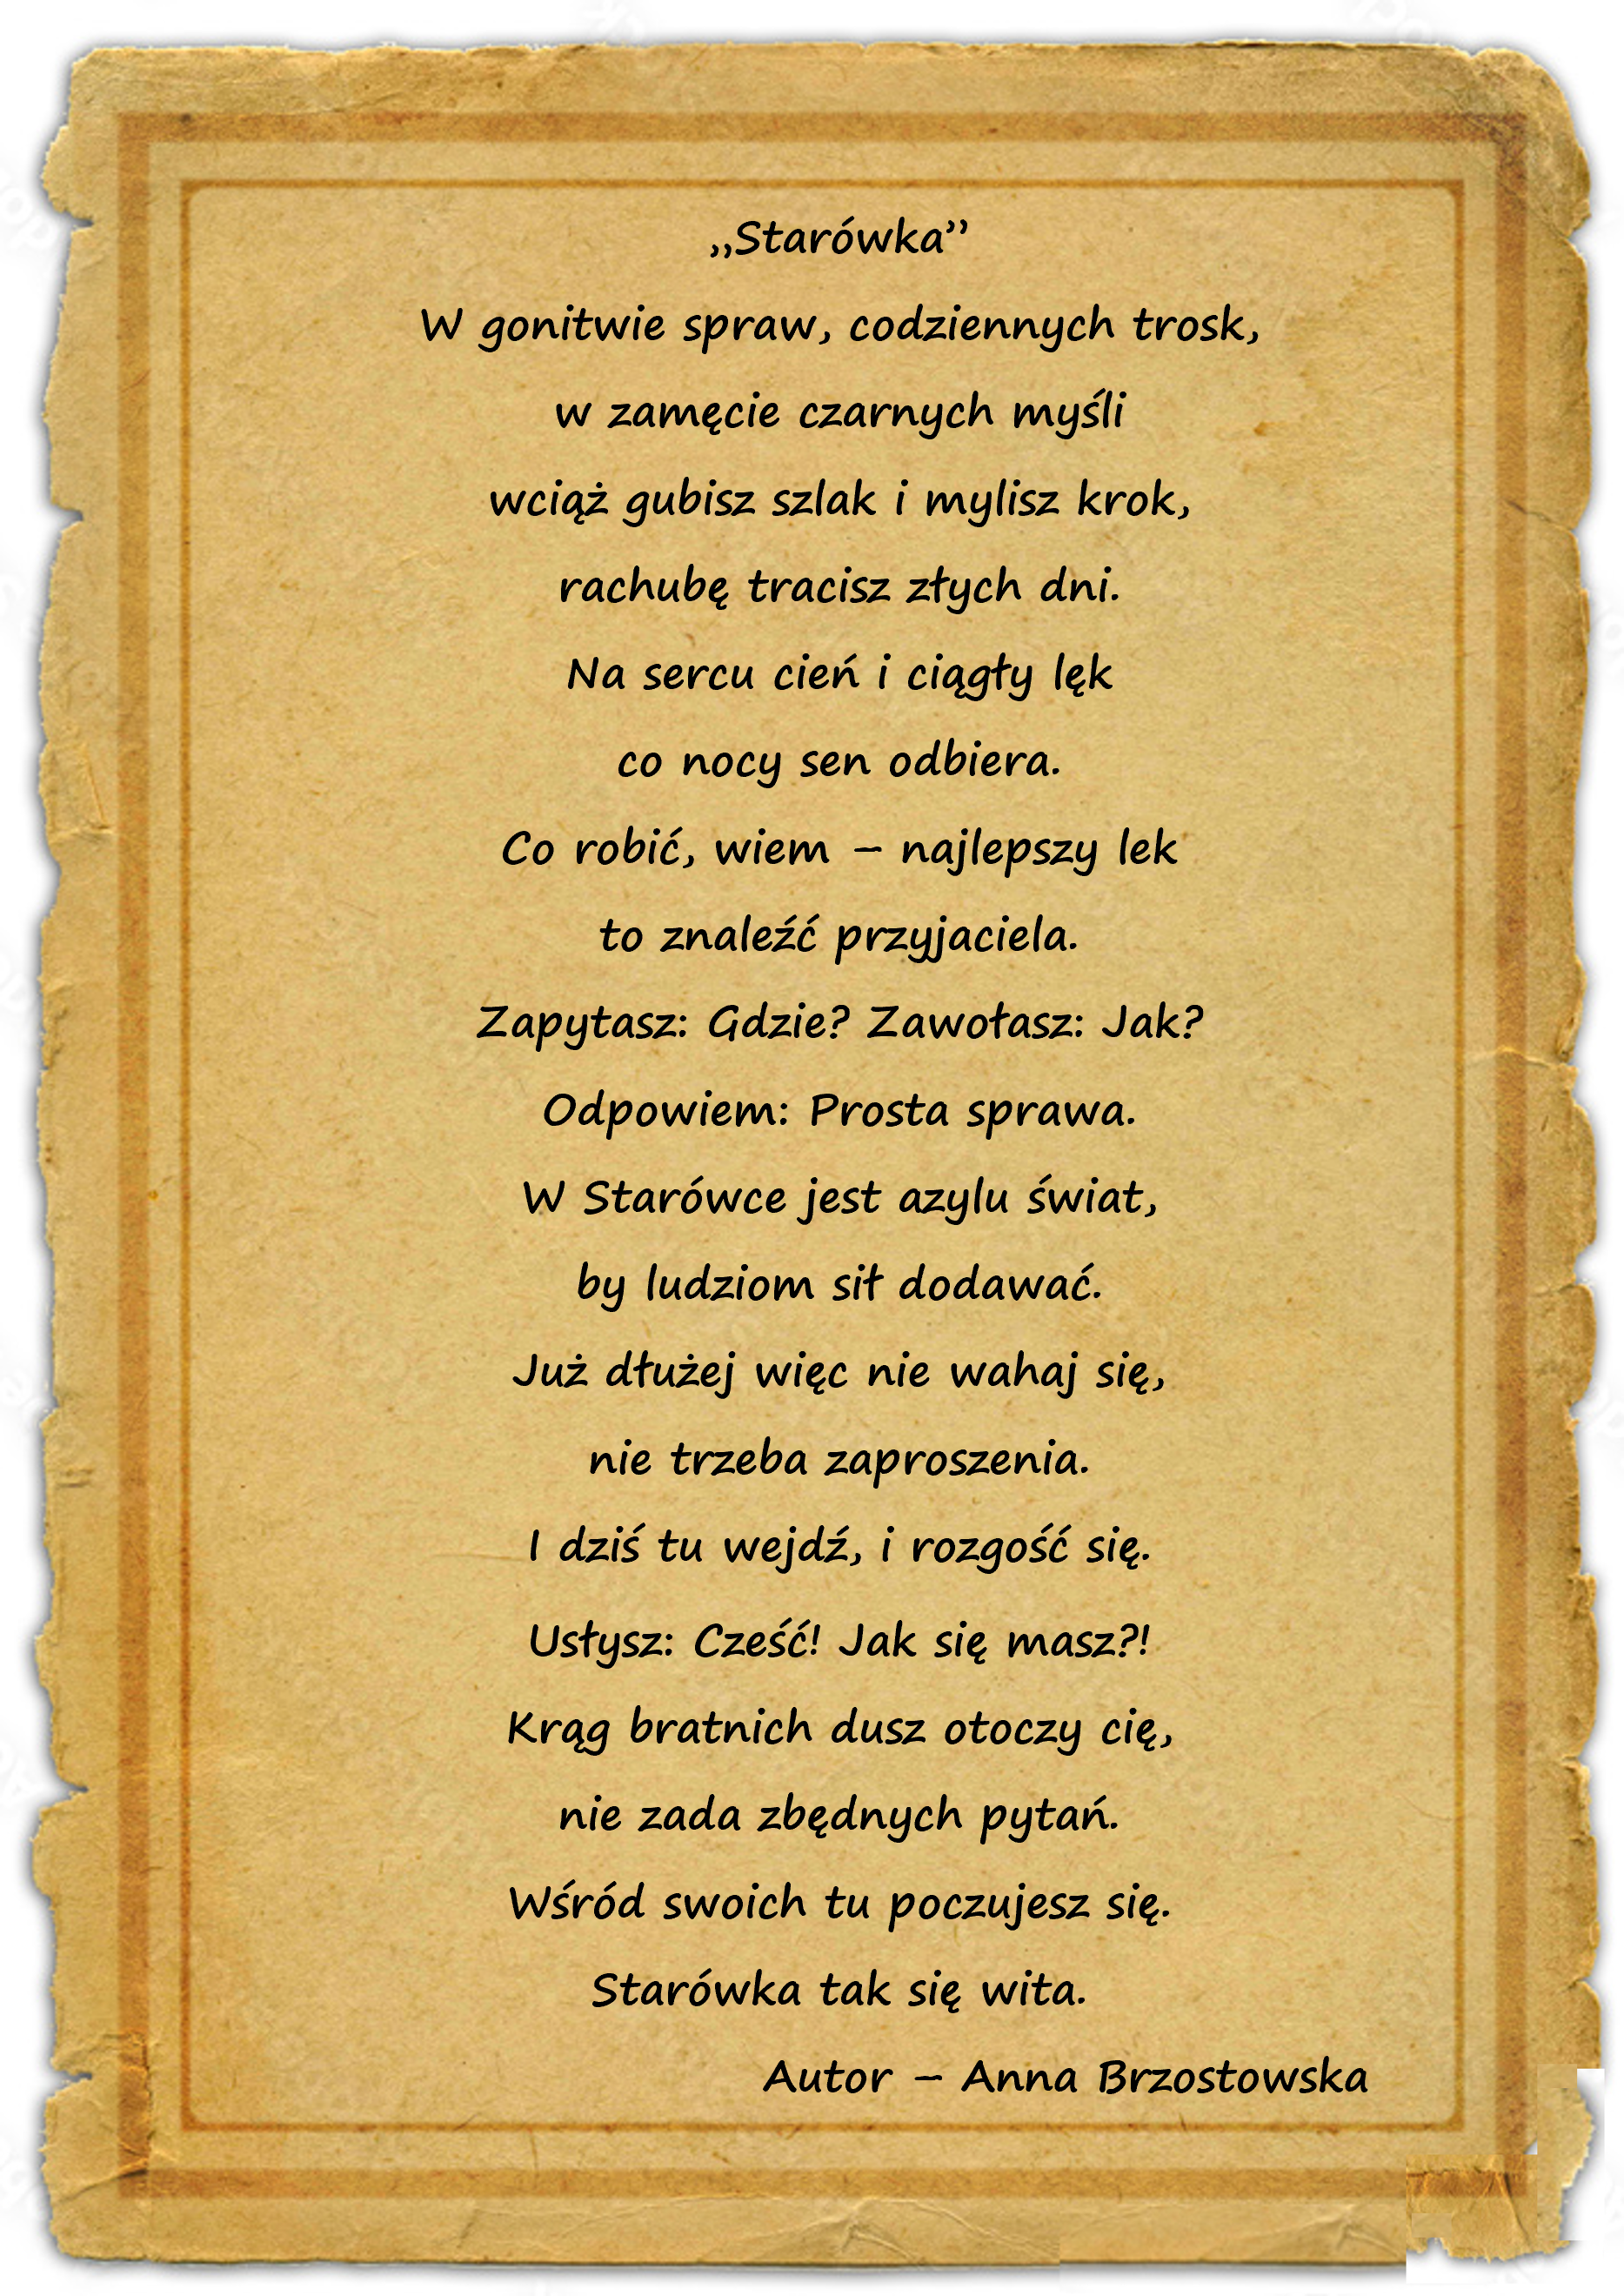 „Starówka”
W gonitwie spraw, codziennych trosk,
w zamęcie czarnych myśli
wciąż gubisz szlak i mylisz krok,
rachubę tracisz złych dni.
Na sercu cień i ciągły lęk
co nocy sen odbiera.
Co robić, wiem – najlepszy lek
to znaleźć przyjaciela.
Zapytasz: Gdzie? Zawołasz: Jak?
Odpowiem: Prosta sprawa.
W Starówce jest azylu świat,
by ludziom sił dodawać.
Już dłużej więc nie wahaj się,
nie trzeba zaproszenia.
I dziś tu wejdź, i rozgość się.
Usłysz: Cześć! Jak się masz?!
Krąg bratnich dusz otoczy cię,
nie zada zbędnych pytań.
Wśród swoich tu poczujesz się.
Starówka tak się wita.
Autor – Anna Brzostowska